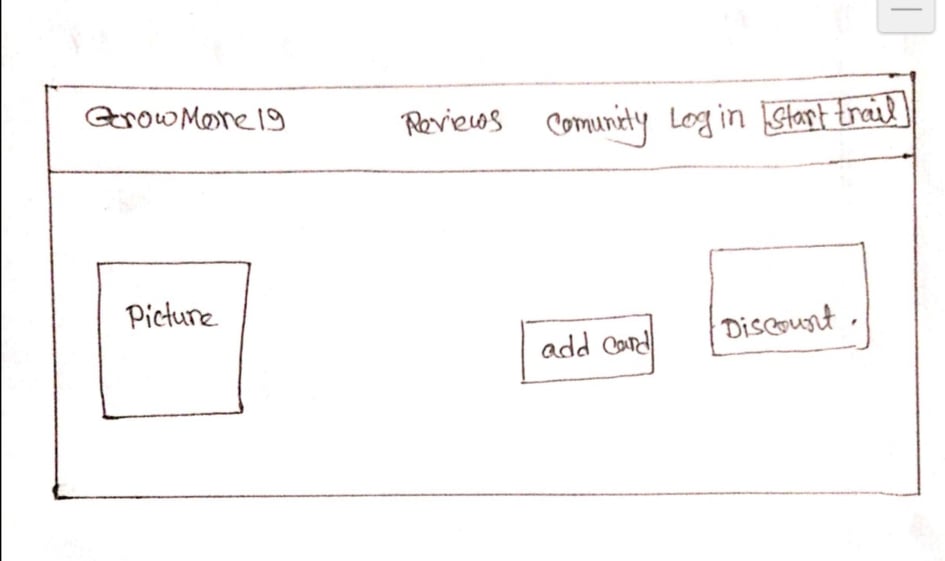 GrowMore19 Reviews Comunity Log in Start trail
Picture
add Card
Discount.